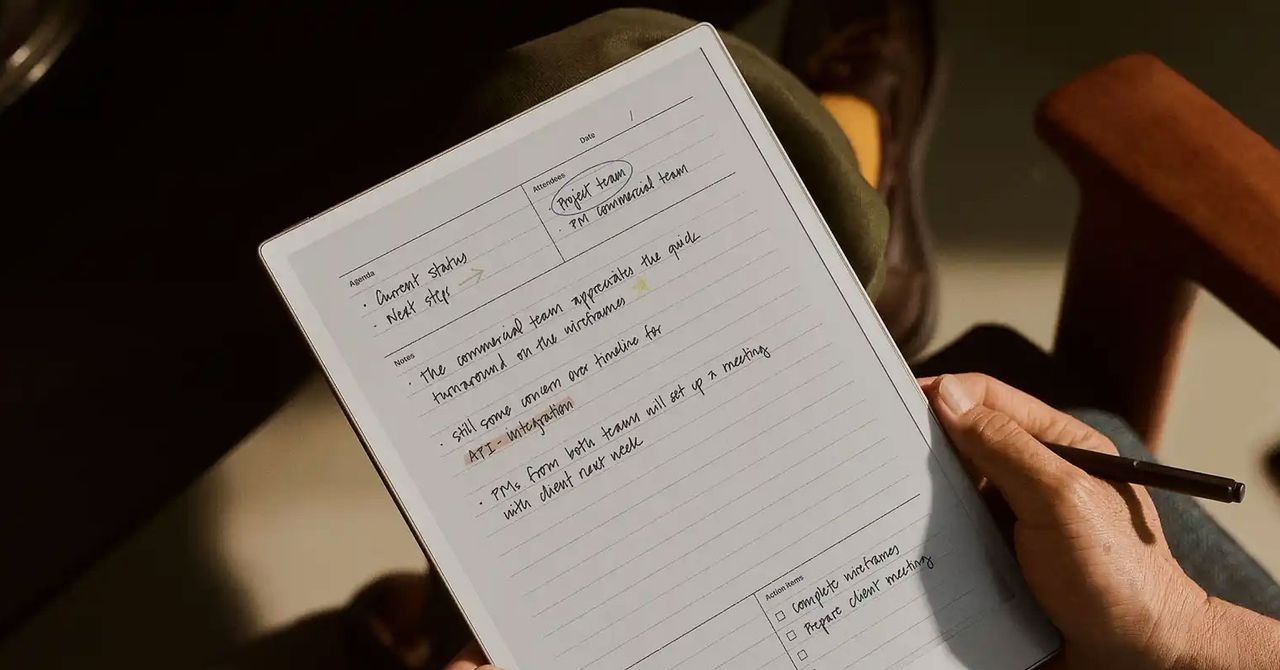 Date /
Attendees
· Project team
· PM commercial team
Agenda
· Current status
· Next steps →
Notes
· The commercial team appreciates the quick
turnaround on the wireframes
· still some concern over timeline for
API-integration
· PMs from both teams will set up a meeting
with client next week
Action items
□ Complete wireframes
□ Prepare client meeting
□